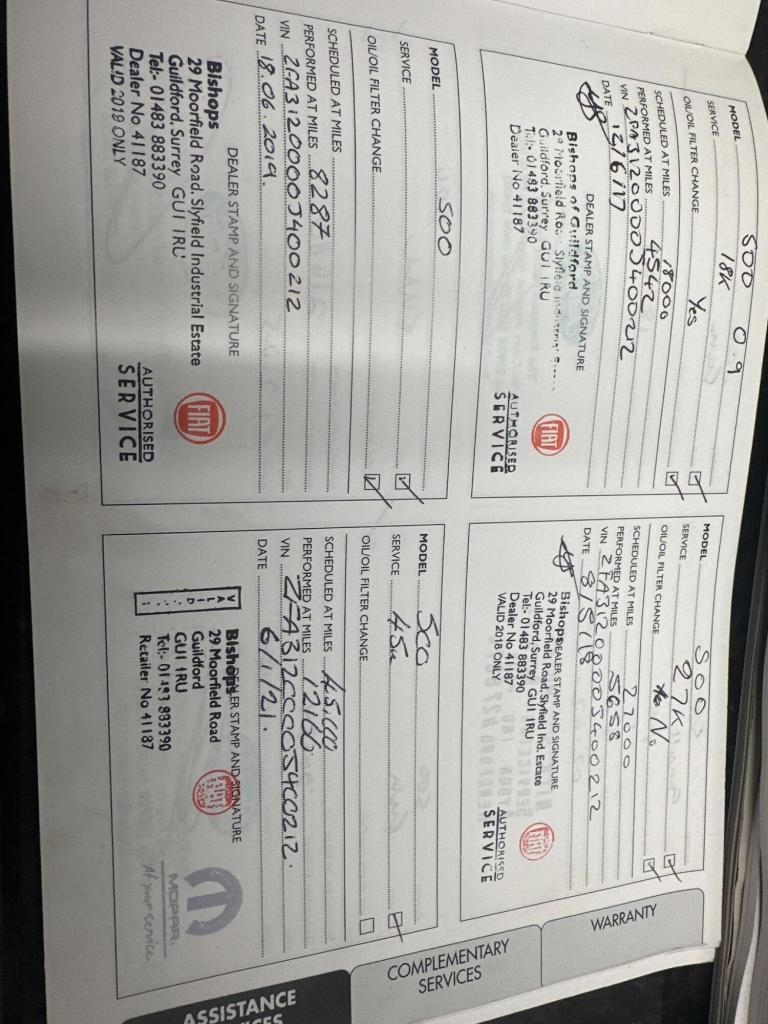 MODEL 500 0.9
SERVICE 18K
OIL/OIL FILTER CHANGE Yes
SCHEDULED AT MILES 18000
PERFORMED AT MILES 4542
VIN ZFA3120000J400212
DATE 12/6/17
DEALER STAMP AND SIGNATURE
Bishops of Guildford
29 Moorfield Road, Slyfield Industrial
Guildford, Surrey GU1 1RU
Tel:- 01483 883390
Dealer No 41187
FIAT
AUTHORISED
SERVICE
MODEL 500
SERVICE 27K
OIL/OIL FILTER CHANGE No
SCHEDULED AT MILES 27000
PERFORMED AT MILES 5658
VIN ZFA3120000J400212
DATE 8/5/18
DEALER STAMP AND SIGNATURE
Bishops
29 Moorfield Road, Slyfield Ind. Estate
Guildford, Surrey GU1 1RU
Tel:- 01483 883390
Dealer No 41187
VALID 2018 ONLY
FIAT
AUTHORISED
SERVICE
MODEL 500
SERVICE
OIL/OIL FILTER CHANGE
SCHEDULED AT MILES
PERFORMED AT MILES 8287
VIN ZFA3120000J400212
DATE 18.06.2019.
DEALER STAMP AND SIGNATURE
Bishops
29 Moorfield Road, Slyfield Industrial Estate
Guildford, Surrey GU1 1RU
Tel:- 01483 883390
Dealer No 41187
VALID 2019 ONLY
FIAT
AUTHORISED
SERVICE
MODEL 500
SERVICE 45k
OIL/OIL FILTER CHANGE
SCHEDULED AT MILES 45,000
PERFORMED AT MILES 12166
VIN ZFA3120000J400212.
DATE 6/1/21.
DEALER STAMP AND SIGNATURE
Bishops
29 Moorfield Road
Guildford
GU1 1RU
Tel:- 01483 883390
Retailer No 41187
FIAT
MOPAR.
At your service
WARRANTY
COMPLEMENTARY
SERVICES
ASSISTANCE